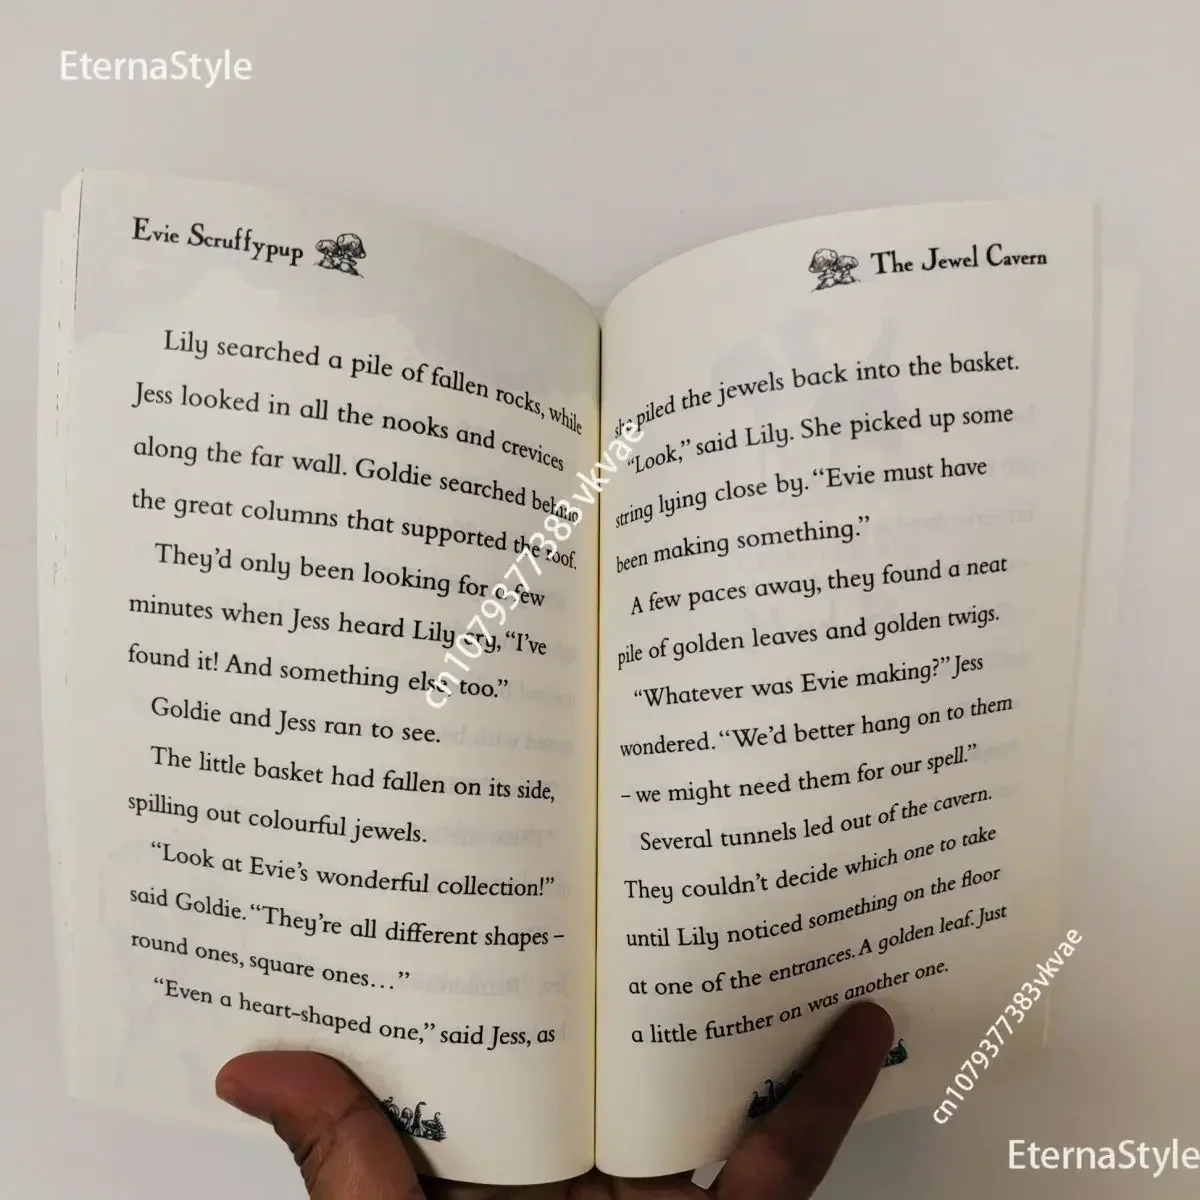 EternaStyle
Evie Scruffypup
Lily searched a pile of fallen rocks, while
Jess looked in all the nooks and crevices
along the far wall. Goldie searched behind
the great columns that supported the roof.
They’d only been looking for a few
minutes when Jess heard Lily cry, “I’ve
found it! And something else, too.”
Goldie and Jess ran to see.
The little basket had fallen on its side,
spilling out colourful jewels.
“Look at Evie’s wonderful collection!”
said Goldie. “They’re all different shapes –
round ones, square ones…”
“Even a heart-shaped one,” said Jess, as
The Jewel Cavern
she piled the jewels back into the basket.
“Look,” said Lily. She picked up some
string lying close by. “Evie must have
been making something.”
A few paces away, they found a neat
pile of golden leaves and golden twigs.
“Whatever was Evie making?” Jess
wondered. “We’d better hang on to them
– we might need them for our spell.”
Several tunnels led out of the cavern.
They couldn’t decide which one to take
until Lily noticed something on the floor
at one of the entrances. A golden leaf. Just
a little further on was another one.
cn1079377383vkvae
cn1079377383vkvae
EternaStyle